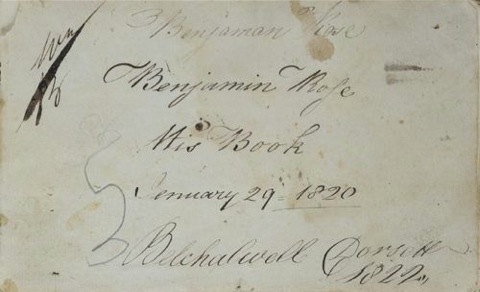 Benjaman Rose
Benjamin Rose
His Book
Jenuary 29 = 1820
Belchalwell Dorsett
1820